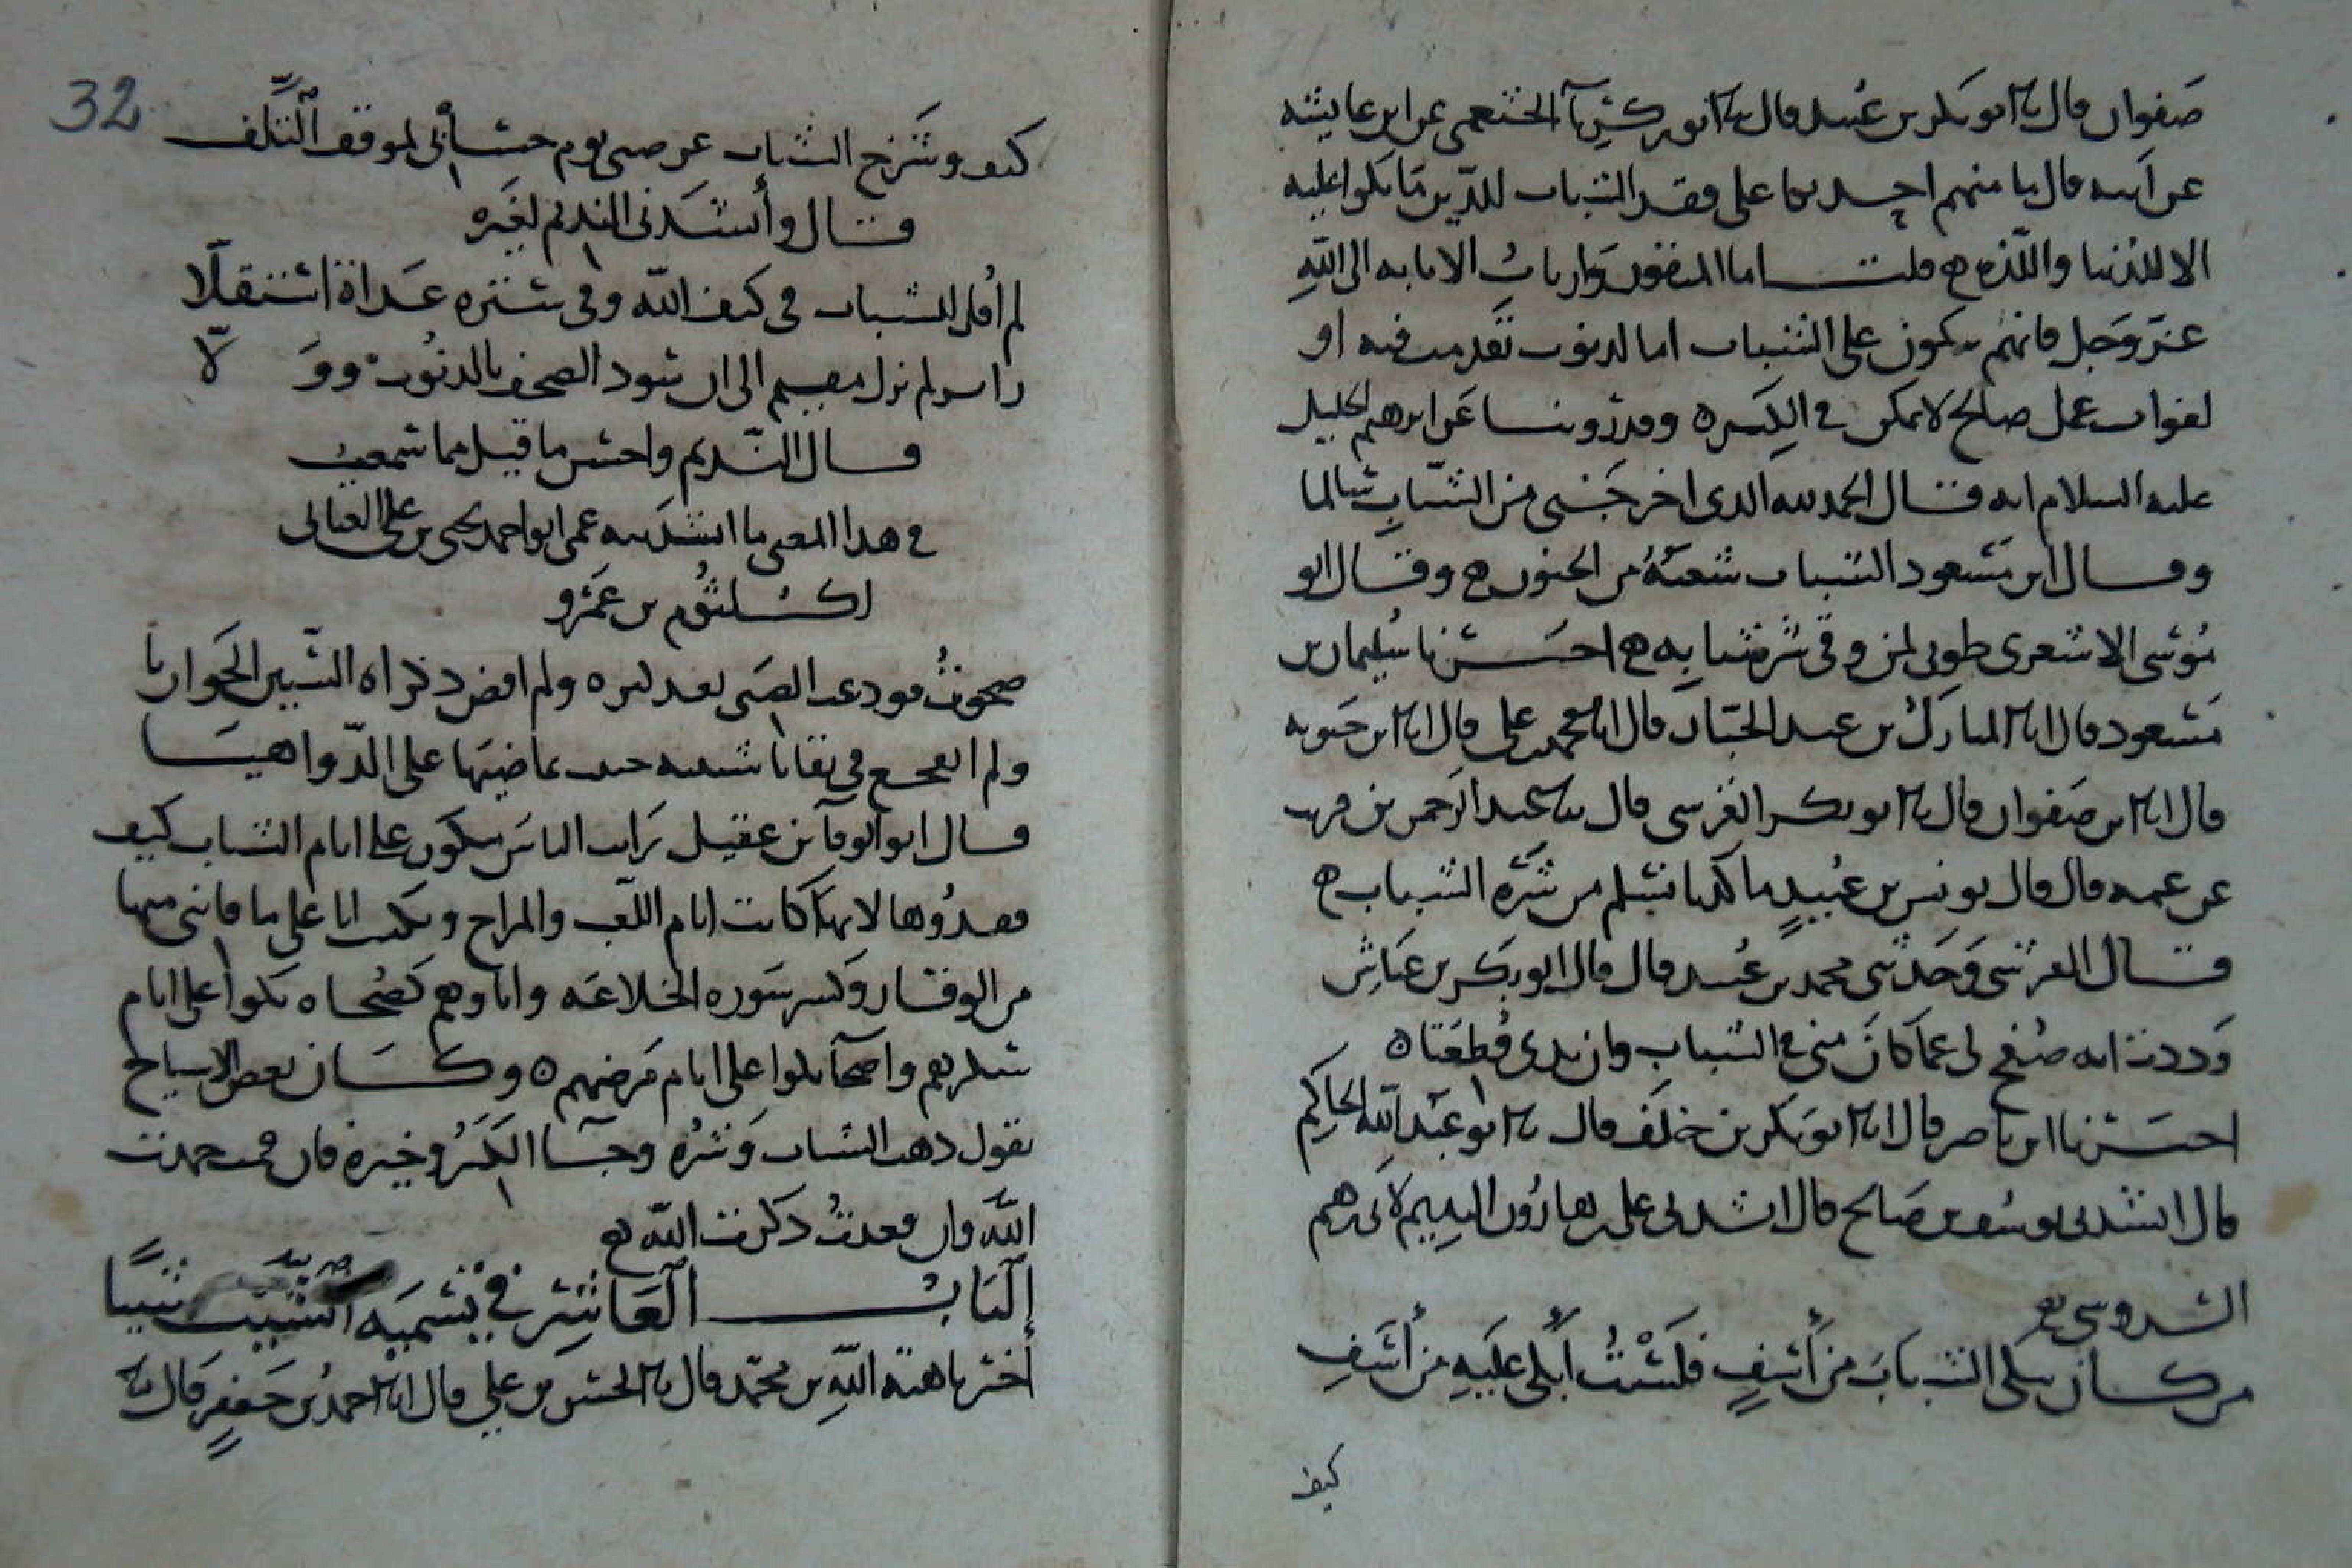 صفوان قال نا ابو بكر بن عبيد قال نا ابو زكريا الخثعمي عن ابن عايشه
عن ابيه قال ما منهم احد بكا على فقد الشباب للدين ما بكوا عليه
الا للدنيا واللذه ه قلت اما المتقون وارباب الانابه الى الله
عز وجل فانهم يبكون على الشباب اما لذنوب تقدمت فيه او
لفوات عمل صالح لا يمكن في الكبره وقد روينا عن ابرهيم الخليل
عليه السلام انه قال الحمد لله الذي اخرجني من الشباب سالما
وقال ابن مسعود الشباب شعبة من الجنون ه وقال ابو
موسى الاشعري طوبى لمن وقي شر شبابه ه اخبرنا سليمان بن
مسعود قال انا المبارك بن عبد الجبار قال انا محمد بن علي قال انا ابن حيويه
قال انا ابن صفوان قال نا ابو بكر القرشي قال نا عبد الرحمن بن قريب
عن عمه قال قال يونس بن عبيد ما كدنا نسلم من شره الشباب ه
قال القرشي وحدثني محمد بن عبيد قال قال ابو بكر بن عياش
وددت انه صفح لي عما كان مني في الشباب وان يدي قطعتا ه
اخبرنا ابن ناصر قال انا ابو بكر بن خلف قال نا ابو عبد الله الحاكم
قال انشدني يوسف بن صالح قال انشدني علي بن هارون النديم لابي هم
السدوسي
من كان يبكي الشباب من أسف فلست أبكي عليه من أسف
كيف
32
كيف وشرخ الشباب عرضني يوم حسابي لموقف التلف
قال وأنشدني النديم لغيره
لم أقل للشباب في كنف الله وفي ستره غداة استقلا
زاير لم يزل مقيم الى ان سود الصحف بالذنوب وولا
قال النديم واحسن ما قيل مما سمعت
في هذا المعنى ما انشدنيه عمي ابو احمد يحيى بن علي
كلثوم بن عمرو
ولم افجع في بقايا شبيبه عاضيتها على الدواهيا
قال ابو الوفا بن عقيل رايت الناس يبكون على ايام الشباب كيف
فقدوها لانها كانت ايام اللعب والمراح وبكيت انا على ما فاتني منها
من الوقار وكسر سوره الخلاعه وانا وهم كصحاه بكوا على ايام
سكرهم واصحا بكوا على ايام مرضهم ه وكان بعض الاشياخ
يقول ذهب الشباب وشره وجا الكبر وخيره فان قمت حمدت
الله وان قعدت ذكرت الله
الباب العاشر في تسميه الشيب شيبا
أخبرنا هبة الله بن محمد قال نا الحسن بن علي قال انا احمد بن جعفر قال نا